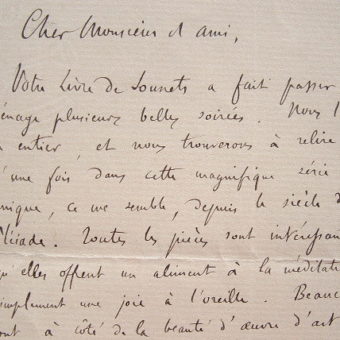 Cher Monsieur et ami,
Votre Livre de Sonnets a fait passer
énage plusieurs belles soirées. Nous l
n entier, et nous trouverons à relire
d'une fois dans cette magnifique série
nique, ce me semble, depuis le siècle d
Pléiade. Toutes les pièces sont intéressan
qu'elles offrent un aliment à la méditati
simplement une joie à l'oreille. Beauc
ont à côté de la beauté d'œuvre d'art